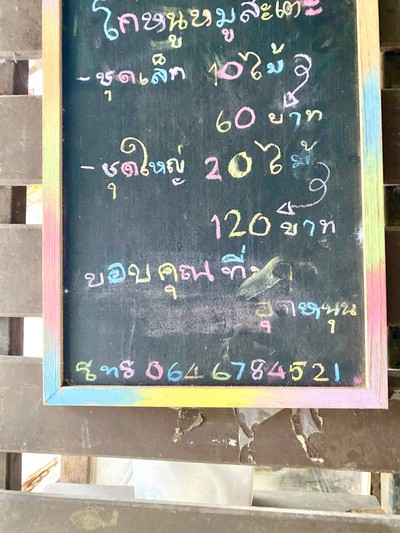 โกหนูหมูสะเต๊ะ
-ชุดเล็ก 10ไม้
60 บาท
-ชุดใหญ่ 20ไม้
120 บาท
ขอบคุณที่
อุดหนุน
โทร 064 6784521